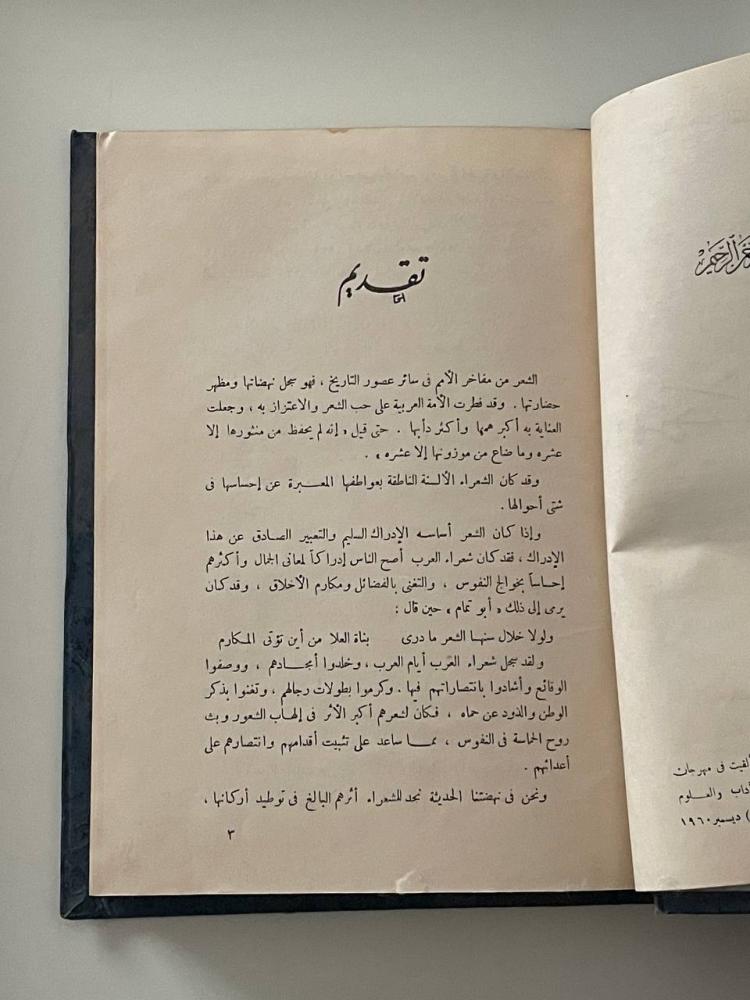 تقديم
الشعر من مفاخر الأمم فى سائر عصور التاريخ ، فهو سجل نهضاتها ومظهر
حضارتها . وقد فطرت الأمة العربية على حب الشعر والاعتزاز به ، وجعلت
العناية به أكبر همها وأكثر دأبها . حتى قيل « إنه لم يحفظ من منثورها إلا
عشره وما ضاع من موزونها إلا عشره » .
وقد كان الشعراء الألسنة الناطقة بعواطفها المعبرة عن إحساسها فى
شتى أحوالها .
وإذا كان الشعر أساسه الإدراك السليم والتعبير الصادق عن هذا
الإدراك ، فقد كان شعراء العرب أصح الناس إدراكاً لمعانى الجمال وأكثرهم
إحساساً بخوالج النفوس ، والتغنى بالفضائل ومكارم الأخلاق ، وقد كان
يرمى إلى ذلك « أبو تمام » حين قال :
ولولا خلال سنها الشعر ما درى بناة العلا من أين تؤتى المكارم
ولقد سجل شعراء العرب أيام العرب ، وخلدوا أمجادهم ، ووصفوا
الوقائع وأشادوا بانتصاراتهم فيها . وكرموا بطولات رجالهم ، وتغنوا بذكر
الوطن والذود عن حماه ، فكان لشعرهم أكبر الأثر فى إلهاب الشعور وبث
روح الحماسة فى النفوس ، مما ساعد على تثبيت أقدامهم وانتصارهم على
أعدائهم .
ونحن فى نهضتنا الحديثة نجد للشعراء أثرهم البالغ فى توطيد أركانها ،
٣
الرحيم
فى مهرجان
والعلوم
) ديسمبر ١٩٦٠